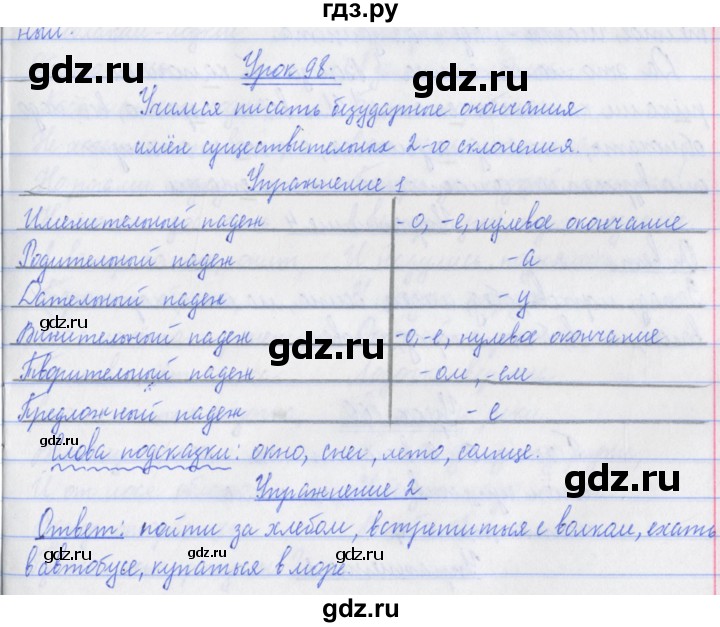 гдз.ру
ный.
Урок 98.
Учимся писать безударные окончания
имён существительных 2-го склонения.
Упражнение 1
Именительный падеж -о, -е, нулевое окончание
Родительный падеж -а
Дательный падеж -у
Винительный падеж -о, -е, нулевое окончание
Творительный падеж -ом, -ем
Предложный падеж -е
Слова подсказки: окно, снег, лето, солнце.
Упражнение 2
Ответ: пойти за хлебом, встретиться с волком, ехать
в автобусе, купаться в море.
gdz.ru
gdz.ru
gdz.ru
gdz.ru
gdz.ru
gdz.ru
gdz.ru
gdz.ru
gdz.ru
gdz.ru